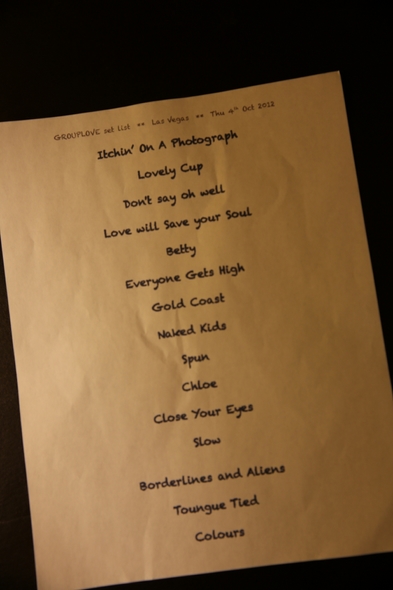 GROUPLOVE set list ** Las Vegas ** Thu 4th Oct 2012
Itchin' On A Photograph
Lovely Cup
Don't say oh well
Love will Save your Soul
Betty
Everyone Gets High
Gold Coast
Naked Kids
Spun
Chloe
Close Your Eyes
Slow
Borderlines and Aliens
Toungue Tied
Colours